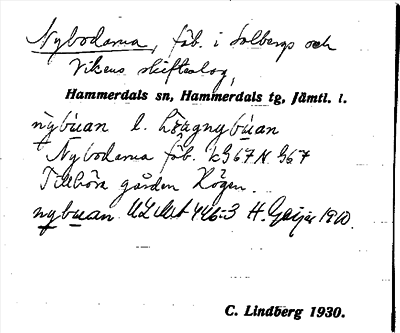 Nybodarna, fäb. i Solbergs och
Vikens skifteslag,
Hammerdals sn, Hammerdals tg, Jämtl. l.
nybuan l. nybuan
Nybodarna fäb. kG67N. G67
Tillhöra gården
nybuan H. Geijer 1910.
C. Lindberg 1930.